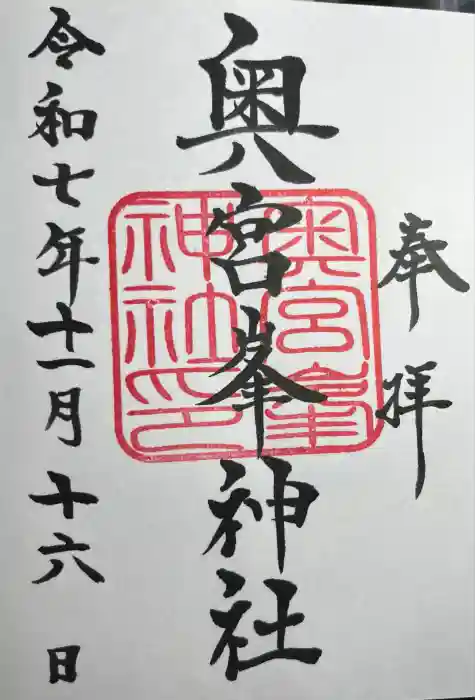 奉拝
奥宮峯神社
奥宮峯
神社印
令和七年十一月十六日